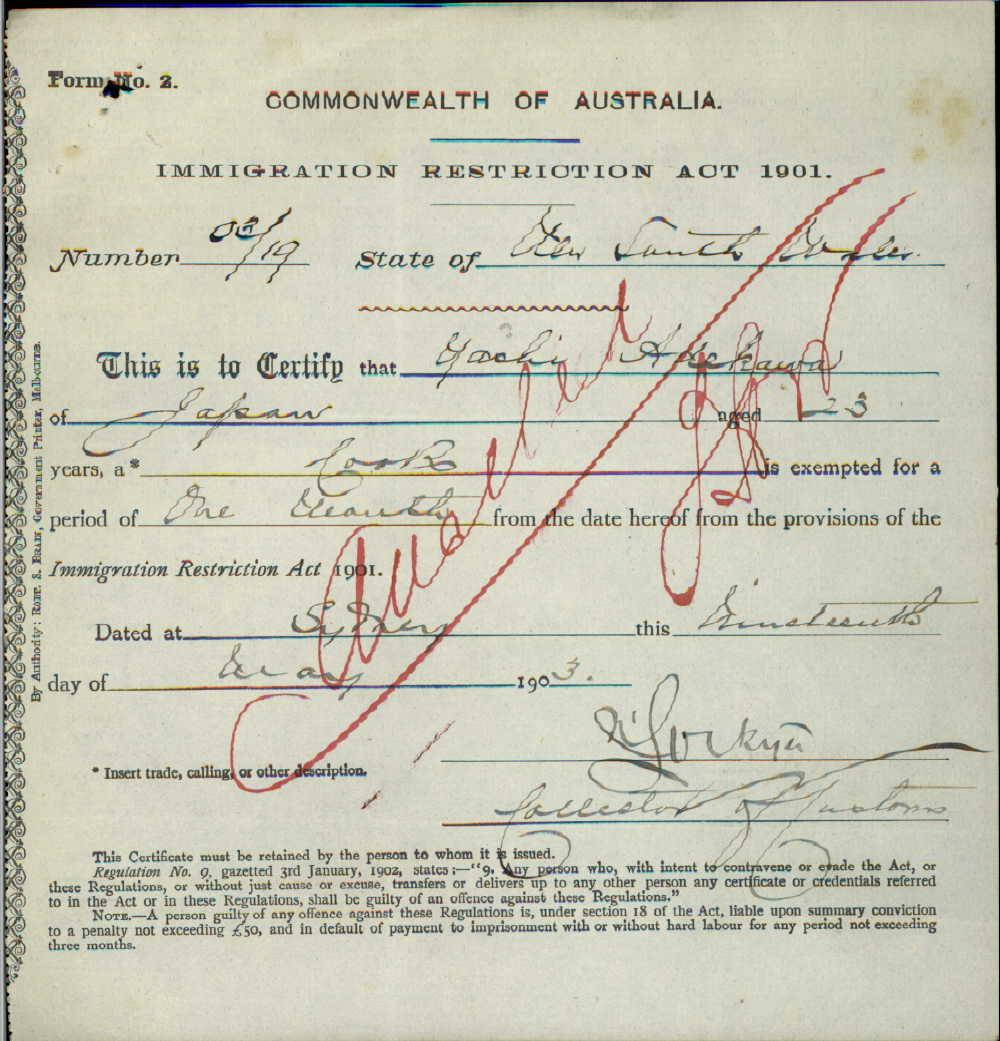 Form No. 2.
COMMONWEALTH OF AUSTRALIA.
IMMIGRATION RESTRICTION ACT 1901.
Number 03/19 State of New South Wales.
This is to Certify that
of Japan aged 23
years, a* Cook is exempted for a
period of One Month from the date hereof from the provisions of the
Immigration Restriction Act 1901.
Cancelled
Dated at Sydney this Nineteenth
day of May 1903.
* Insert trade, calling, or other description.
Collector of Customs
This Certificate must be retained by the person to whom it is issued.
Regulation No. 9, gazetted 3rd January, 1902, states:—"9. Any person who, with intent to contravene or evade the Act, or
these Regulations, or without just cause or excuse, transfers or delivers up to any other person any certificate or credentials referred
to in the Act or in these Regulations, shall be guilty of an offence against these Regulations."
NOTE.—A person guilty of any offence against these Regulations is, under section 18 of the Act, liable upon summary conviction
to a penalty not exceeding £50, and in default of payment to imprisonment with or without hard labour for any period not exceeding
three months.
By Authority: ROBT. S. BRAIN, Government Printer, Melbourne.